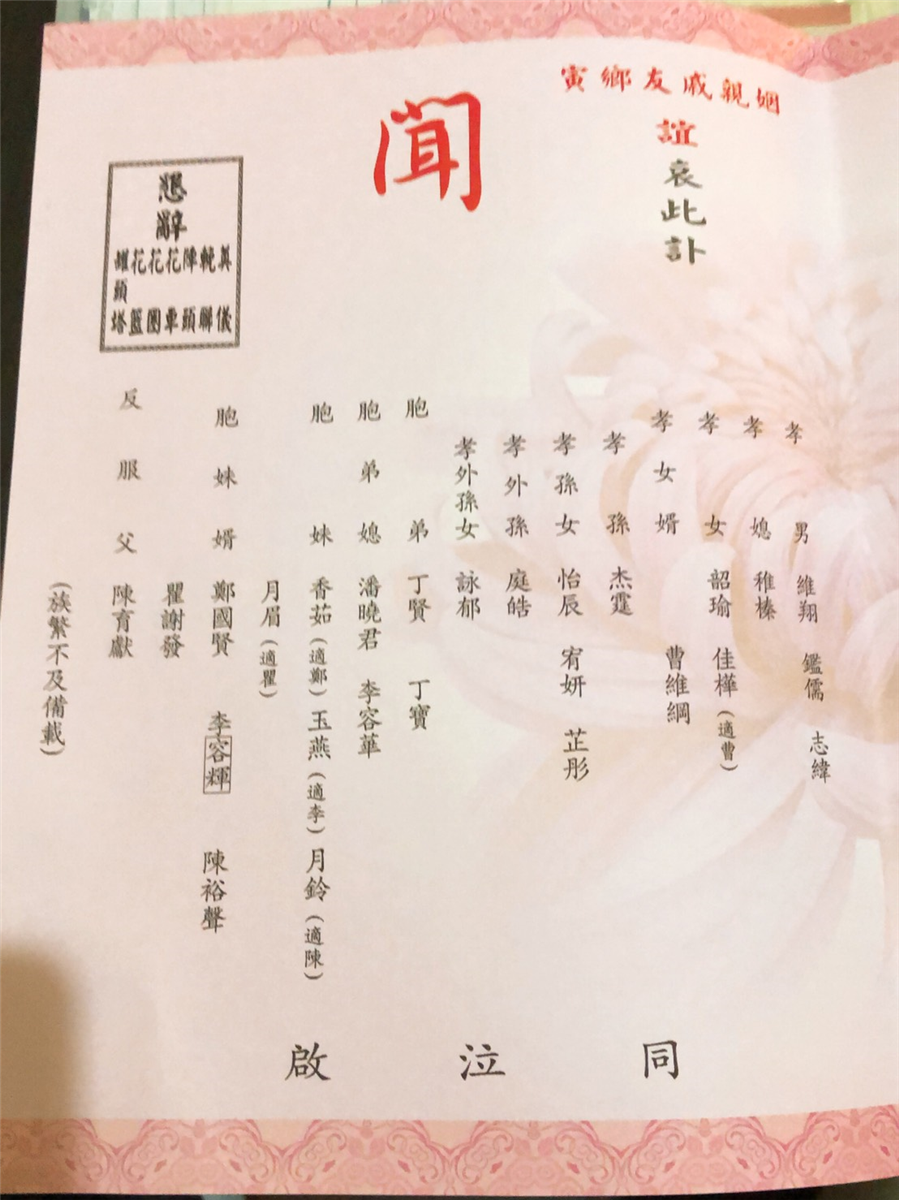 姻親戚友鄉寅
誼哀此訃
聞
懇辭
奠儀
輓聯
陣頭
花車
花圈
花籃
罐頭塔
孝男 維翔 鑑儒 志緯
孝媳 稚榛
孝女 韶瑜 佳樺(適曹)
孝女婿 曹維綱
孝孫 杰霆
孝孫女 怡辰 宥妍 芷彤
孝外孫 庭皓
孝外孫女 詠郁
胞弟 丁賢 丁寶
胞弟媳 潘曉君 李容華
胞妹 香茹(適鄭) 玉燕(適李) 月鈴(適陳)
月眉(適瞿)
胞妹婿 鄭國賢 李容輝 陳裕聲
瞿謝發
反服父 陳育獻
(族繁不及備載)
同泣啟